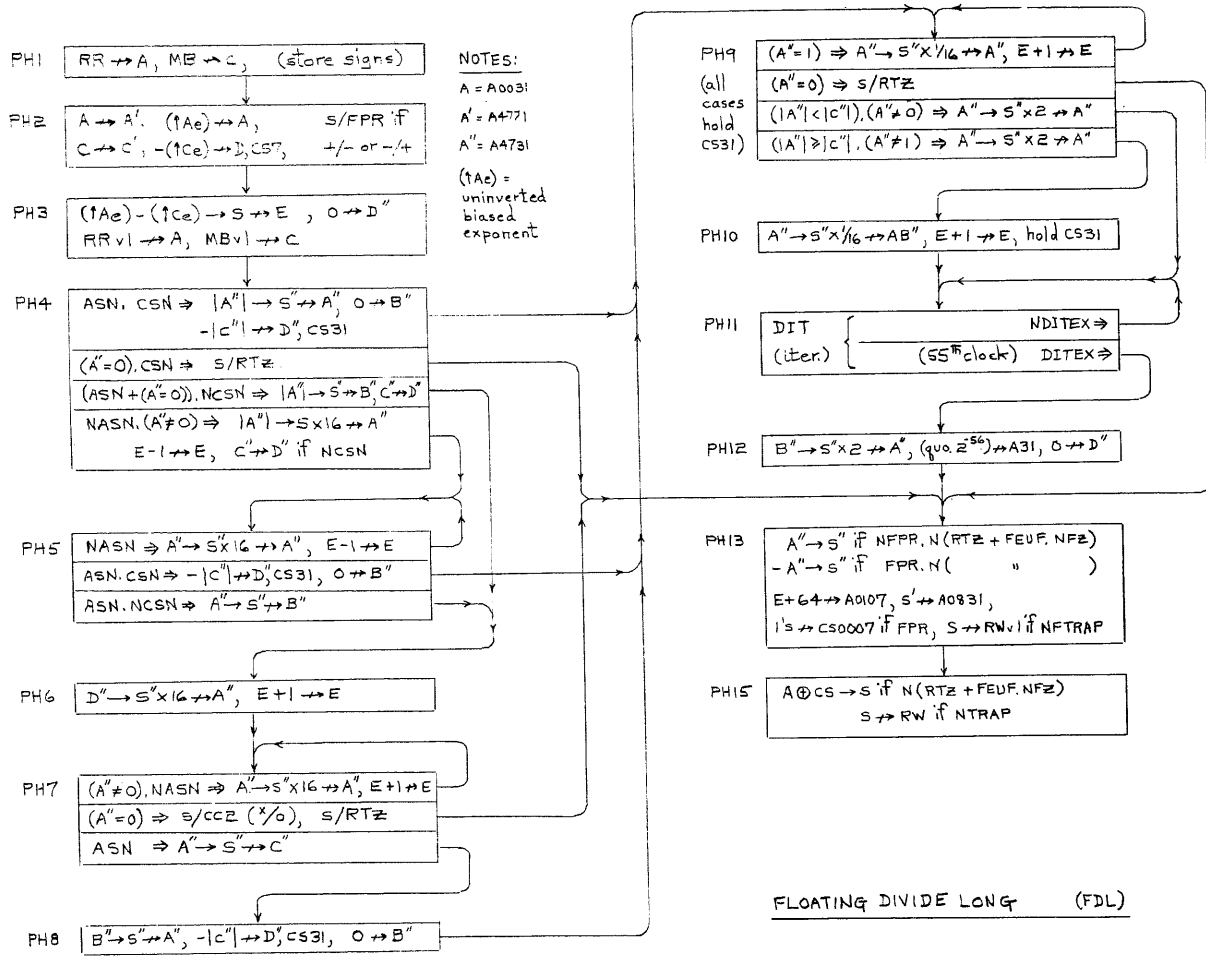 PH1
RR ↛ A, MB ↛ C, (store signs)
NOTES:
A = A0031
A' = A4771
A" = A4731
(↑Ae) =
uninverted
biased
exponent
PH2
A ↛ A'. (↑Ae) ↛ A, S/FPR if
C ↛ C', -(↑Ce) ↛ D, CS7, +/- or -/+
PH3
(↑Ae) - (↑Ce) → S ↛ E , 0 ↛ D"
RRv1 ↛ A, MBv1 ↛ C
PH4
ASN. CSN ⇒ |A"| → S" ↛ A", 0 ↛ B"
-|C"| ↛ D", CS31
(A"=0). CSN ⇒ S/RTZ
(ASN + (A"=0)). NCSN ⇒ |A"| → S" ↛ B", C" ↛ D"
NASN. (A"≠0) ⇒ |A"| → S×16 ↛ A"
E-1 ↛ E, C" ↛ D" if NCSN
PH5
NASN ⇒ A" → S"×16 ↛ A", E-1 ↛ E
ASN. CSN ⇒ -|C"| ↛ D", CS31, 0 ↛ B"
ASN. NCSN ⇒ A" → S" ↛ B"
PH6
D" → S"×16 ↛ A", E+1 ↛ E
PH7
(A"≠0). NASN ⇒ A" → S"×16 ↛ A", E+1 ↛ E
(A"=0) ⇒ S/CC2 (x/0), S/RTZ
ASN ⇒ A" → S" ↛ C"
PH8
B" → S" ↛ A", -|C"| ↛ D", CS31, 0 ↛ B"
PH9
(all
cases
hold
CS31)
(A"=1) ⇒ A" ↛ S"×1/16 ↛ A", E+1 ↛ E
(A"=0) ⇒ S/RTZ
(|A"| < |C"|). (A"≠0) ⇒ A" → S"×2 ↛ A"
(|A"| ≥ |C"|). (A"≠1) ⇒ A" → S"×2 ↛ A"
PH10
A" → S"×1/16 ↛ AB", E+1 ↛ E, hold CS31
PH11
DIT
(iter.)
NDITEX ⇒
(55th clock) DITEX ⇒
PH12
B" → S"×2 ↛ A", (quo. 2^-56) ↛ A31, 0 ↛ D"
PH13
A" → S" if NFPR. N(RTZ + FEUF. NFZ)
-A" → S" if FPR. N( " )
E+64 ↛ A0107, S' ↛ A0831,
1's ↛ CS0007 if FPR, S ↛ RWv1 if NFTRAP
PH15
A⊕CS → S if N(RTZ + FEUF. NFZ)
S ↛ RW if NTRAP
FLOATING DIVIDE LONG (FDL)